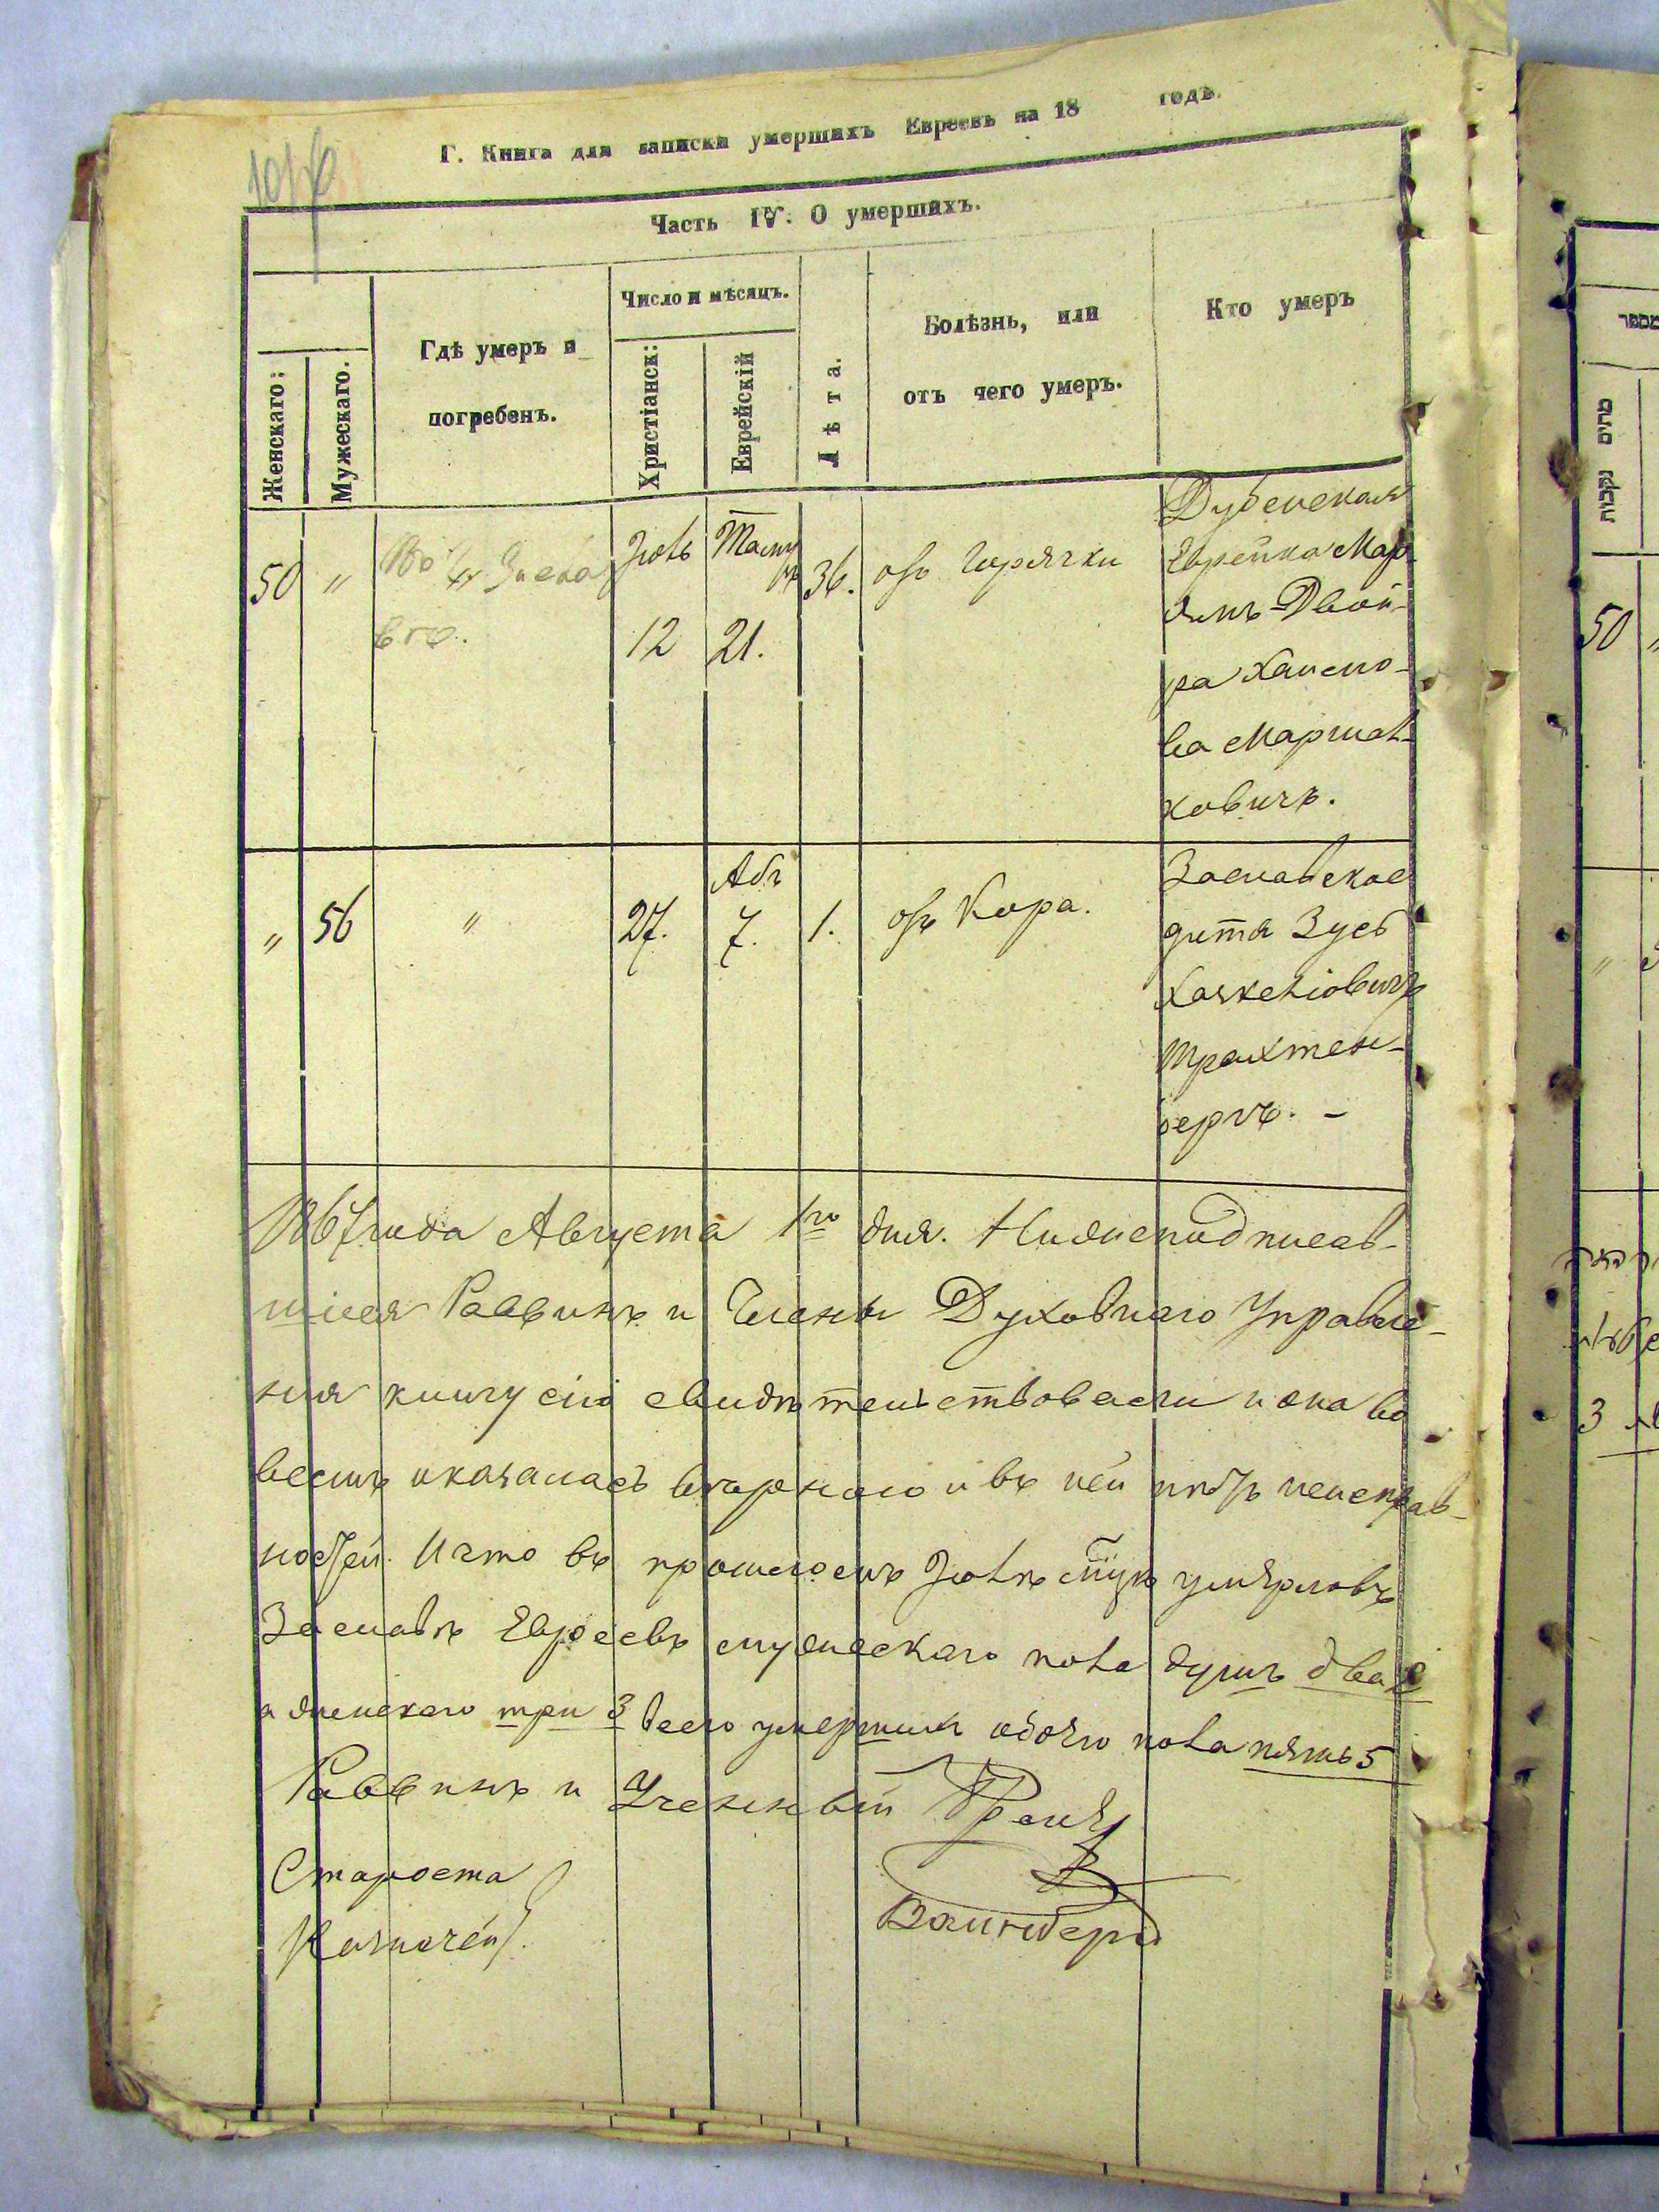 Г. Книга для записки умершихъ Евреевъ на 18 годъ.
Часть IV. О умершихъ.
Женскаго:
Мужескаго.
Гдѣ умеръ и
погребенъ.
Число и мѣсяцъ.
Христіанск:
Еврейскій
Лѣта.
Болѣзнь, или
отъ чего умеръ.
Кто умеръ
50 " Іюль Тамуз 36. отъ Горячки
12 21.
Дубенская
Еврейка Мар
ямъ Двой-
ра Хаимо-
ва Маршал-
ковичъ.
" 56 " 27. Абъ 7. 1. отъ Кора.
Заславское
дитя Зусь
Хаскеліовичъ
Трахтен-
бергъ. –
1867 года Августа 1го дня. Нижеподписав-
шіеся Раввинъ и Члены Духовнаго Управле-
нія книгу сію свидѣтельствовали и она во
всемъ оказалась вѣрною и въ ней нѣтъ неисправ-
ностей. И что въ прошломъ Іюлѣ мцѣ умѣрло въ
Заславлѣ Евреевъ мужескаго пола душъ два 2
а женскаго три 3 всего умершихъ обоего пола пять 5
Раввинъ и Ученный
Староста
Казначей
Ваинберг
מספר
מתים נקבות
50 "
"
3